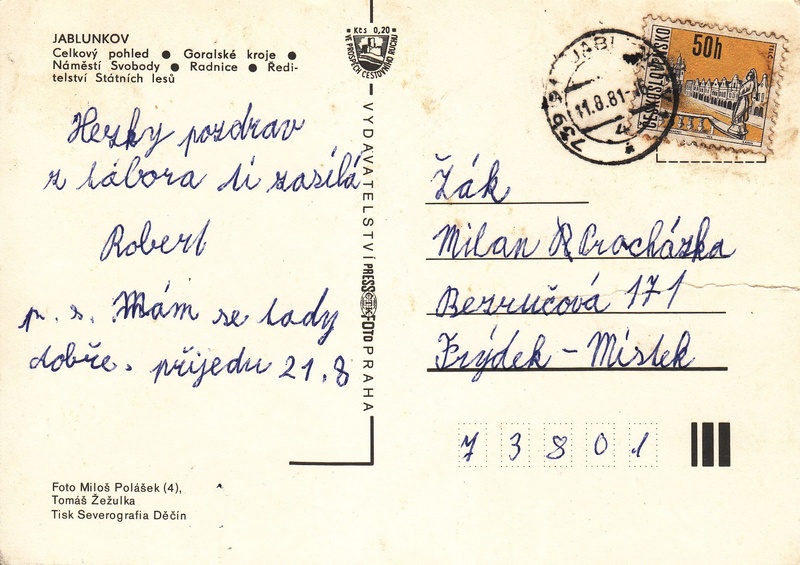 JABLUNKOV
Celkový pohled ● Goralské kroje ●
Náměstí Svobody ● Radnice ● Ředi-
telství Státních lesů
Kčs 0,20
VE PROSPĚCH CESTOVNÍHO RUCHU
Hezky pozdrav
z tábora ti zasílá
Robert
p. s. Mám se tady
dobře. přijedu 21.8
VYDAVATELSTVÍ PRESSFOTO PRAHA
ČTK
Foto Miloš Polášek (4),
Tomáš Žežulka
Tisk Severografia Děčín
739 91 JABL
11.8.81
50h
ČESKOSLOVENSKO
Žák
Milan Procházka
Bezručová 171
Frýdek - Místek
73801